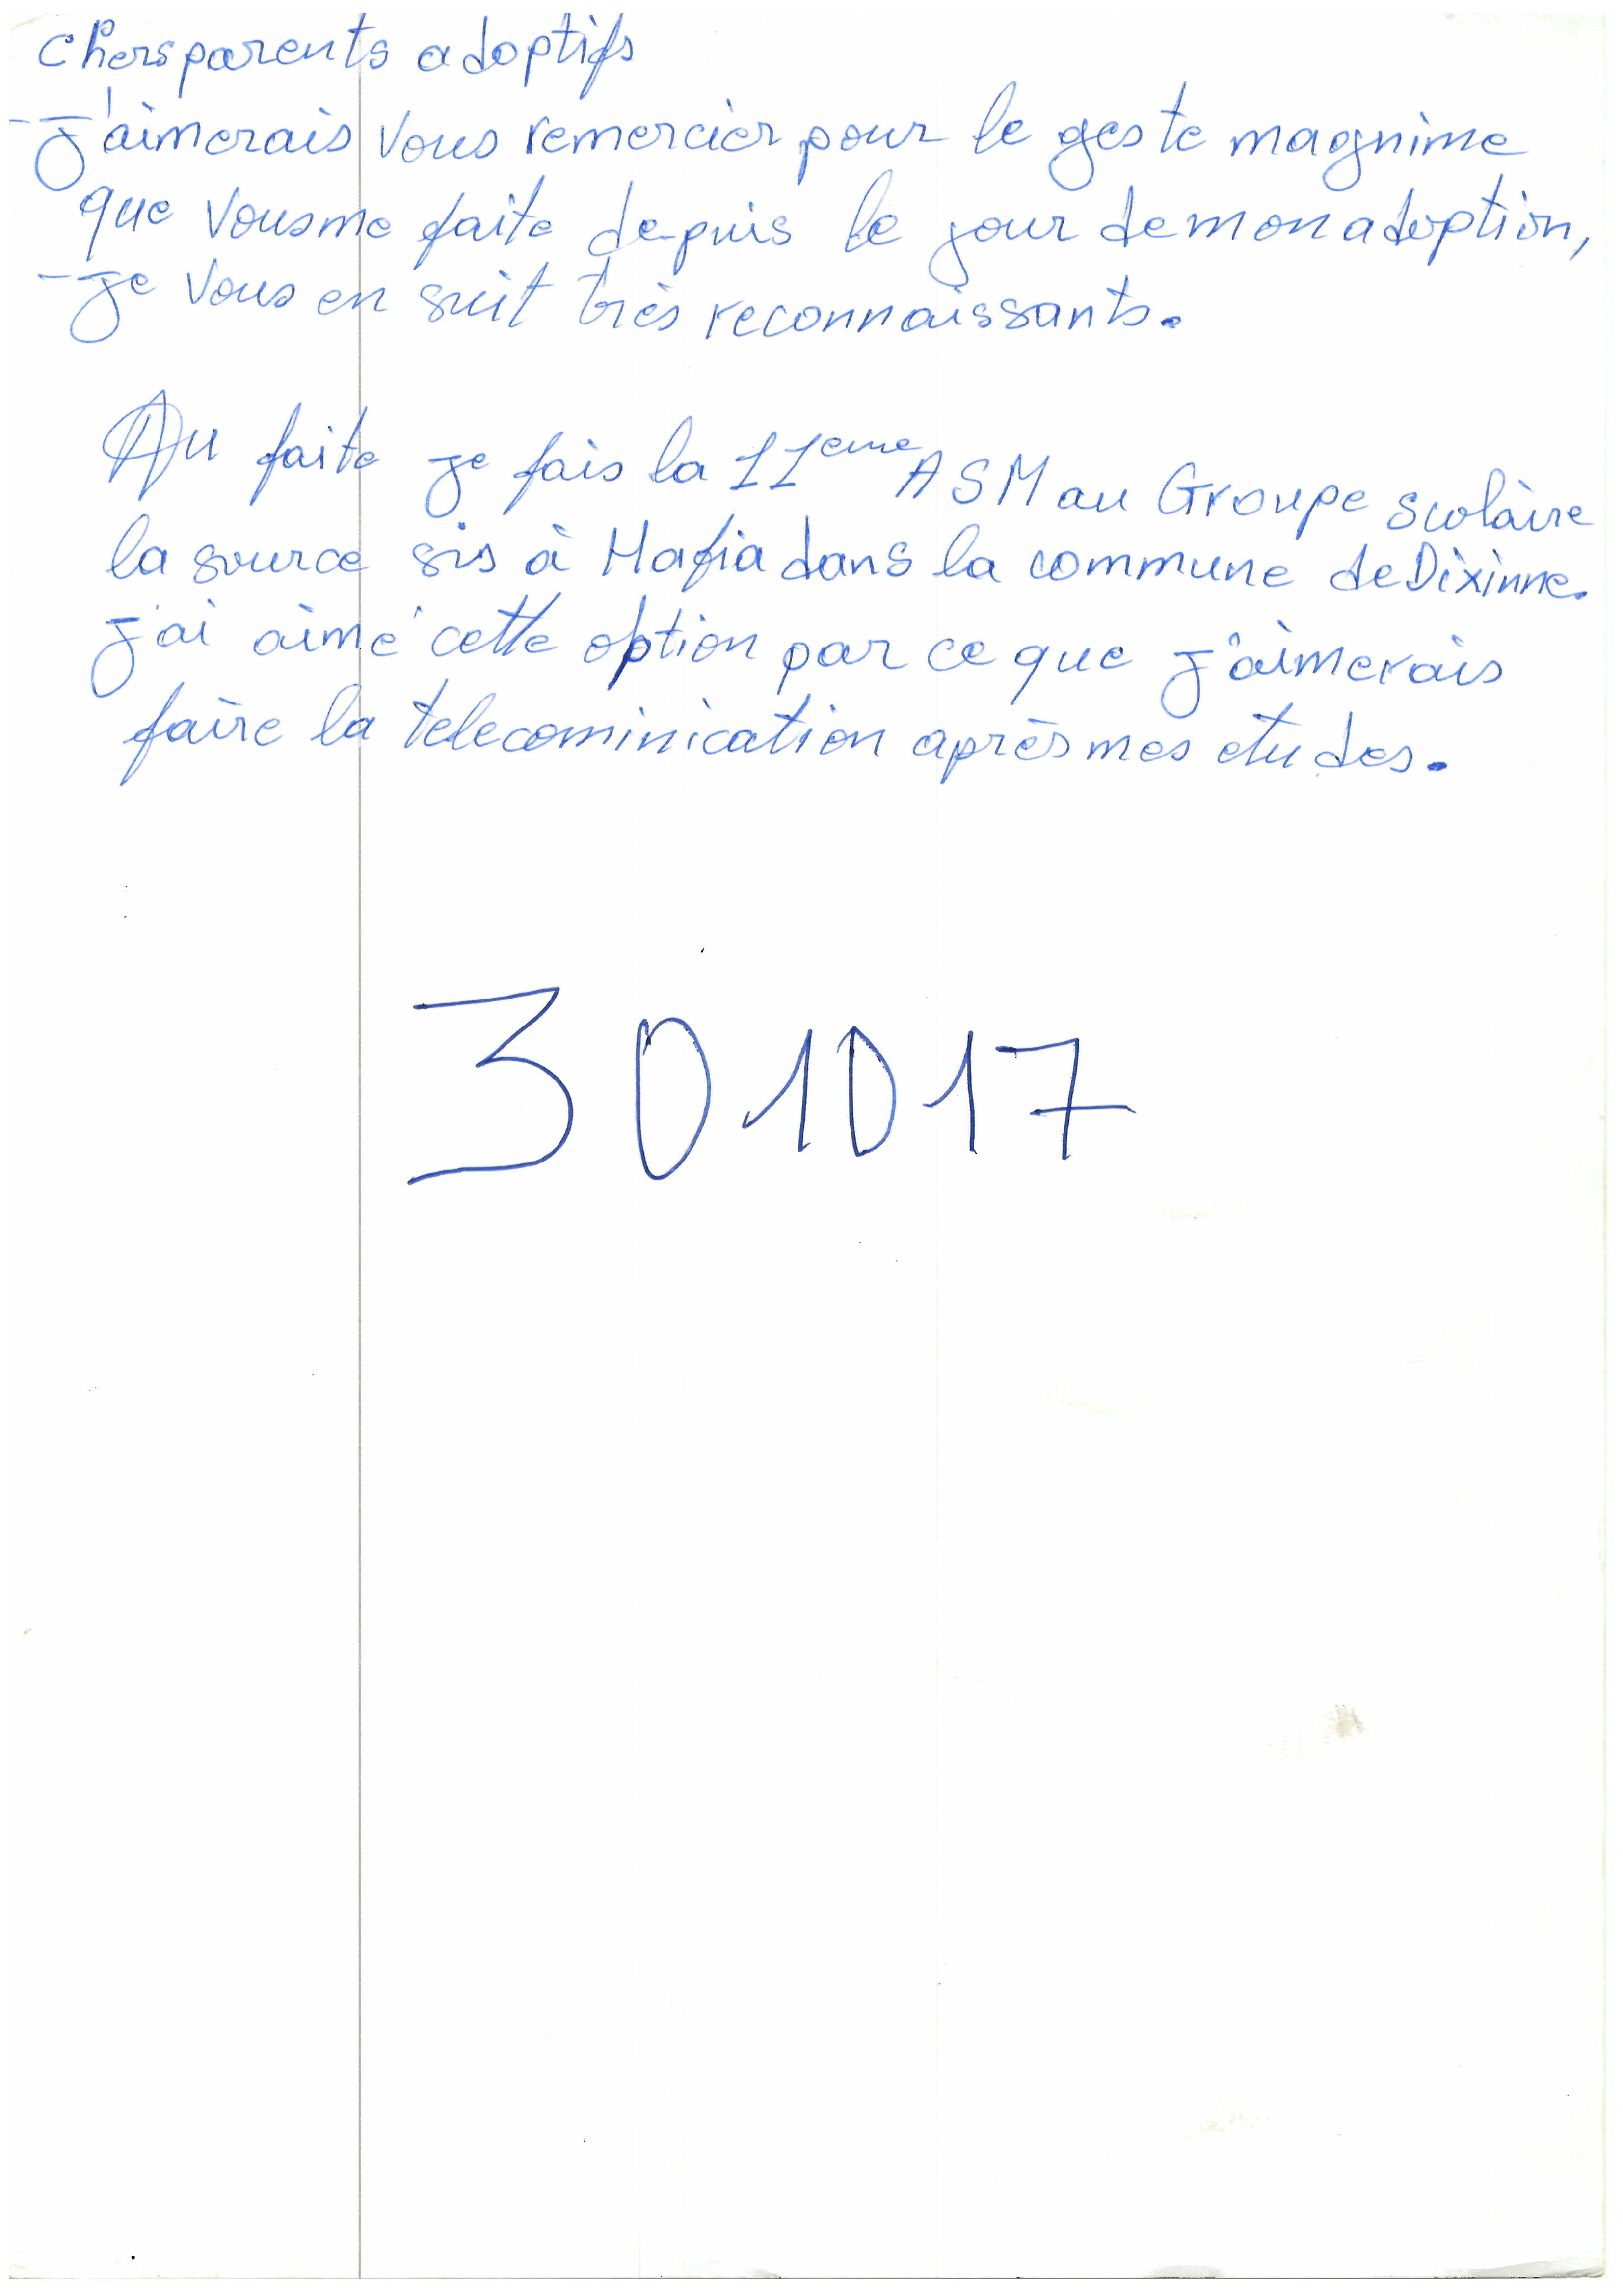 chers parents adoptifs
- J'aimerais vous remercier pour le geste magnime
que vous me faite depuis le jour de mon adoption,
- Je vous en suit très reconnaissants.
Au faite je fais la 11eme ASM au Groupe scolaire
la source sis à Hafia dans la commune de Dixinne.
J'ai aimé cette option par ce que j'aimerais
faire la telecominication après mes etudes.
301017